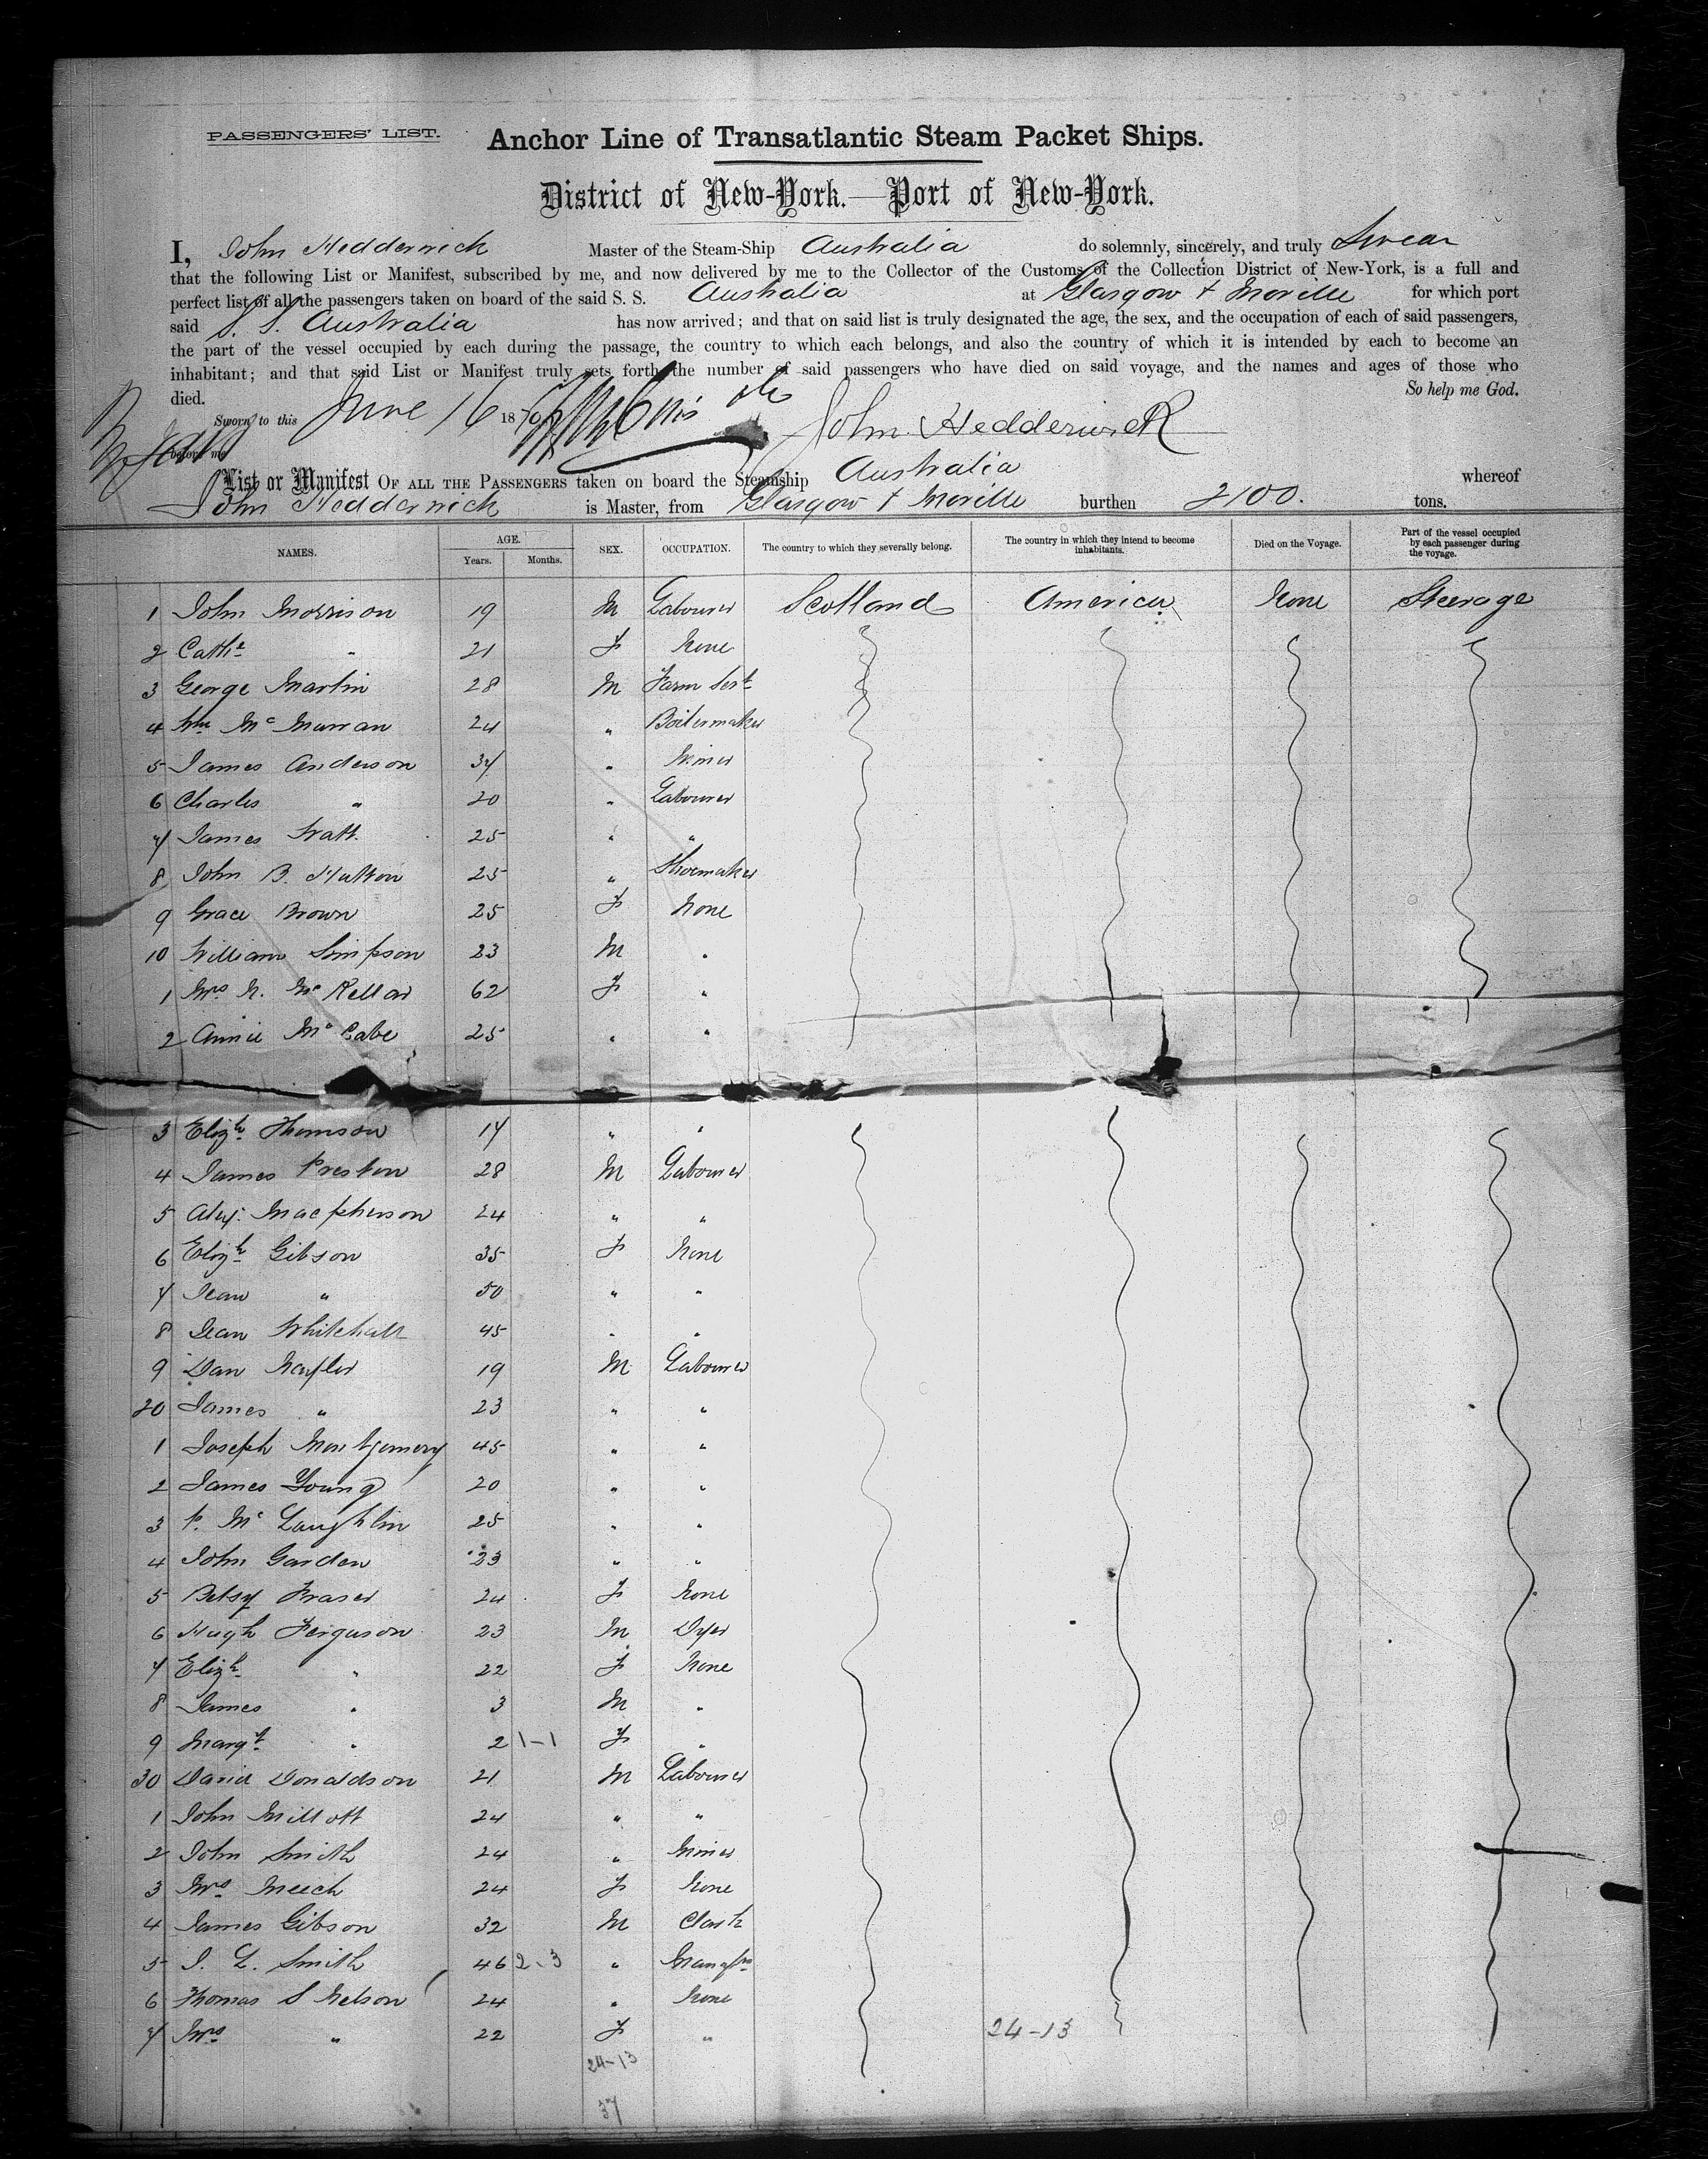 PASSENGERS' LIST. Anchor Line of Transatlantic Steam Packet Ships.
District of New-York.—Port of New-York.
I, John Hedderwick Master of the Steam-Ship Australia do solemnly, sincerely, and truly Swear
that the following List or Manifest, subscribed by me, and now delivered by me to the Collector of the Customs of the Collection District of New-York, is a full and
perfect list of all the passengers taken on board of the said S. S. Australia at Glasgow & Moville for which port
said S. S. Australia has now arrived; and that on said list is truly designated the age, the sex, and the occupation of each of said passengers,
the part of the vessel occupied by each during the passage, the country to which each belongs, and also the country of which it is intended by each to become an
inhabitant; and that said List or Manifest truly sets forth the number of said passengers who have died on said voyage, and the names and ages of those who
died. So help me God.
Sworn to this June 16 1870 John Hedderwick
before me
List or Manifest OF ALL THE PASSENGERS taken on board the Steamship Australia whereof
John Hedderwick is Master, from Glasgow & Moville burthen 2100. tons.
NAMES. AGE. Years. Months. SEX. OCCUPATION. The country to which they severally belong. The country in which they intend to become inhabitants. Died on the Voyage. Part of the vessel occupied by each passenger during the voyage.
1 John Morrison 19 M Labourer Scotland America None Steerage
2 Cathe " 21 F None
3 George Martin 28 M Farm Servt
4 Wm McMurran 24 " Boilermaker
5 James Anderson 37 " Miner
6 Charles " 20 " Labourer
7 James Watt 25 " "
8 John B. Hutton 25 " Shoemaker
9 Grace Brown 25 F None
10 William Simpson 23 M "
1 Mrs N. McKellar 62 F "
2 Annie McCabe 25 " "
3 Elizh Thomson 17 " "
4 James Preston 28 M Labourer
5 Alex. Macpherson 24 " "
6 Elizh Gibson 35 F None
7 Jean " 50 " "
8 Jean Whitehall 45 " "
9 Dan Naylor 19 M Labourer
20 James " 23 " "
1 Joseph Montgomery 45 " "
2 James Young 20 " "
3 P. McLaughlin 25 " "
4 John Garden 23 " "
5 Betsy Fraser 24 F None
6 Hugh Ferguson 23 M Dyer
7 Elizh " 22 F None
8 James " 3 M "
9 Margt " 2 1-1 F "
30 David Donaldson 21 M Labourer
1 John Millott 24 " "
2 John Smith 24 " Miner
3 Mrs Meech 24 F None
4 James Gibson 32 M Clerk
5 J. L. Smith 46 2-3 "
6 Thomas S Nelson 24 " None
7 Mrs " 22 F " 24-13
24-13
37